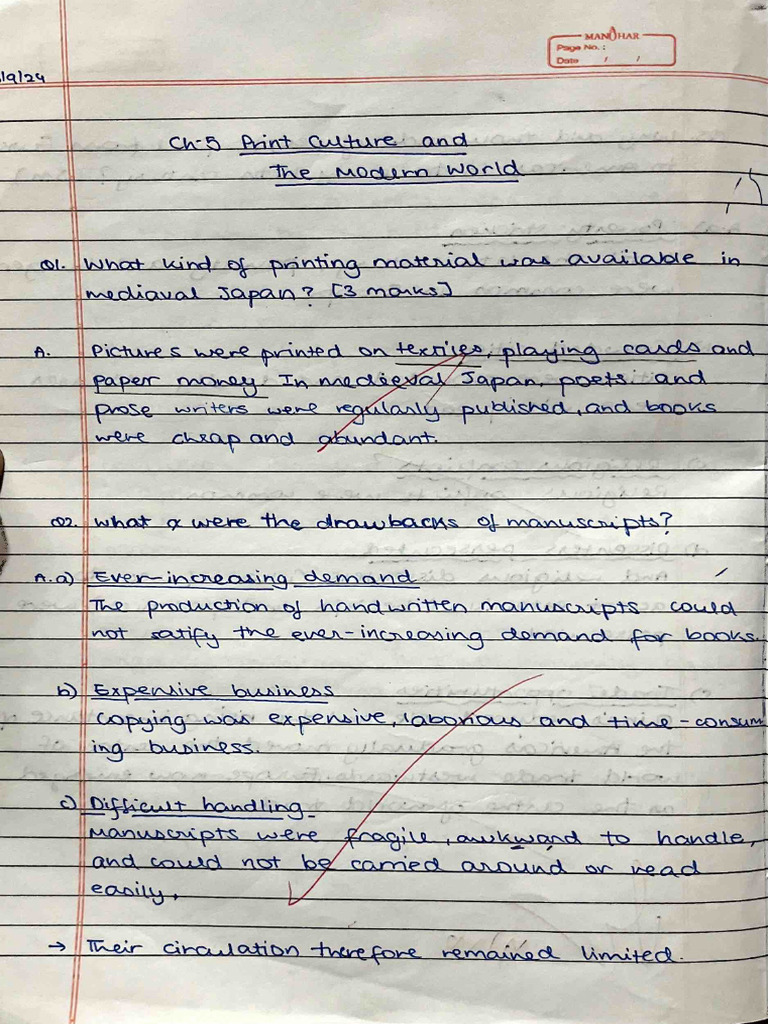 MANOHAR
Page No. :
Date / /
/9/24
Ch-5 Print Culture and
The Modern World
Q1. What kind of printing material was available in
mediaval Japan? [3 marks]
A. Pictures were printed on textiles, playing cards and
paper money. In medieval Japan, poets and
prose writers were regularly published, and books
were cheap and abundant.
Q2. What were the drawbacks of manuscripts?
A. a) Ever-increasing demand
The production of handwritten manuscripts could
not satify the ever-increasing demand for books.
b) Expensive business
Copying was expensive, laborious and time-consum
ing business.
c) Difficult handling
Manuscripts were fragile, awkward to handle,
and could not be carried around or read
easily.
→ Their circulation therefore remained limited.